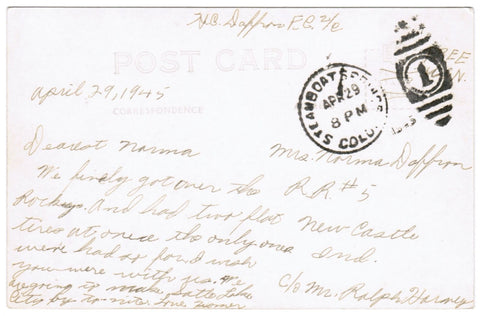 H.C. Daffron F.C. 2/c
POST CARD
FREE
April 29, 1945
CORRESPONDENCE
STEAMBOAT SPRINGS
APR 29
8 PM
COLO.
1
Dearest Norma
We finely got over the
Rockeys. And had two flat
tires at once the only ones
we've had so far. I wish
you were with us. We
are going to make Salt Lake
City by to-nite. Love
Mrs. Norma Daffron
R.R. #5
New Castle
Ind.
c/o Mr. Ralph Harvey